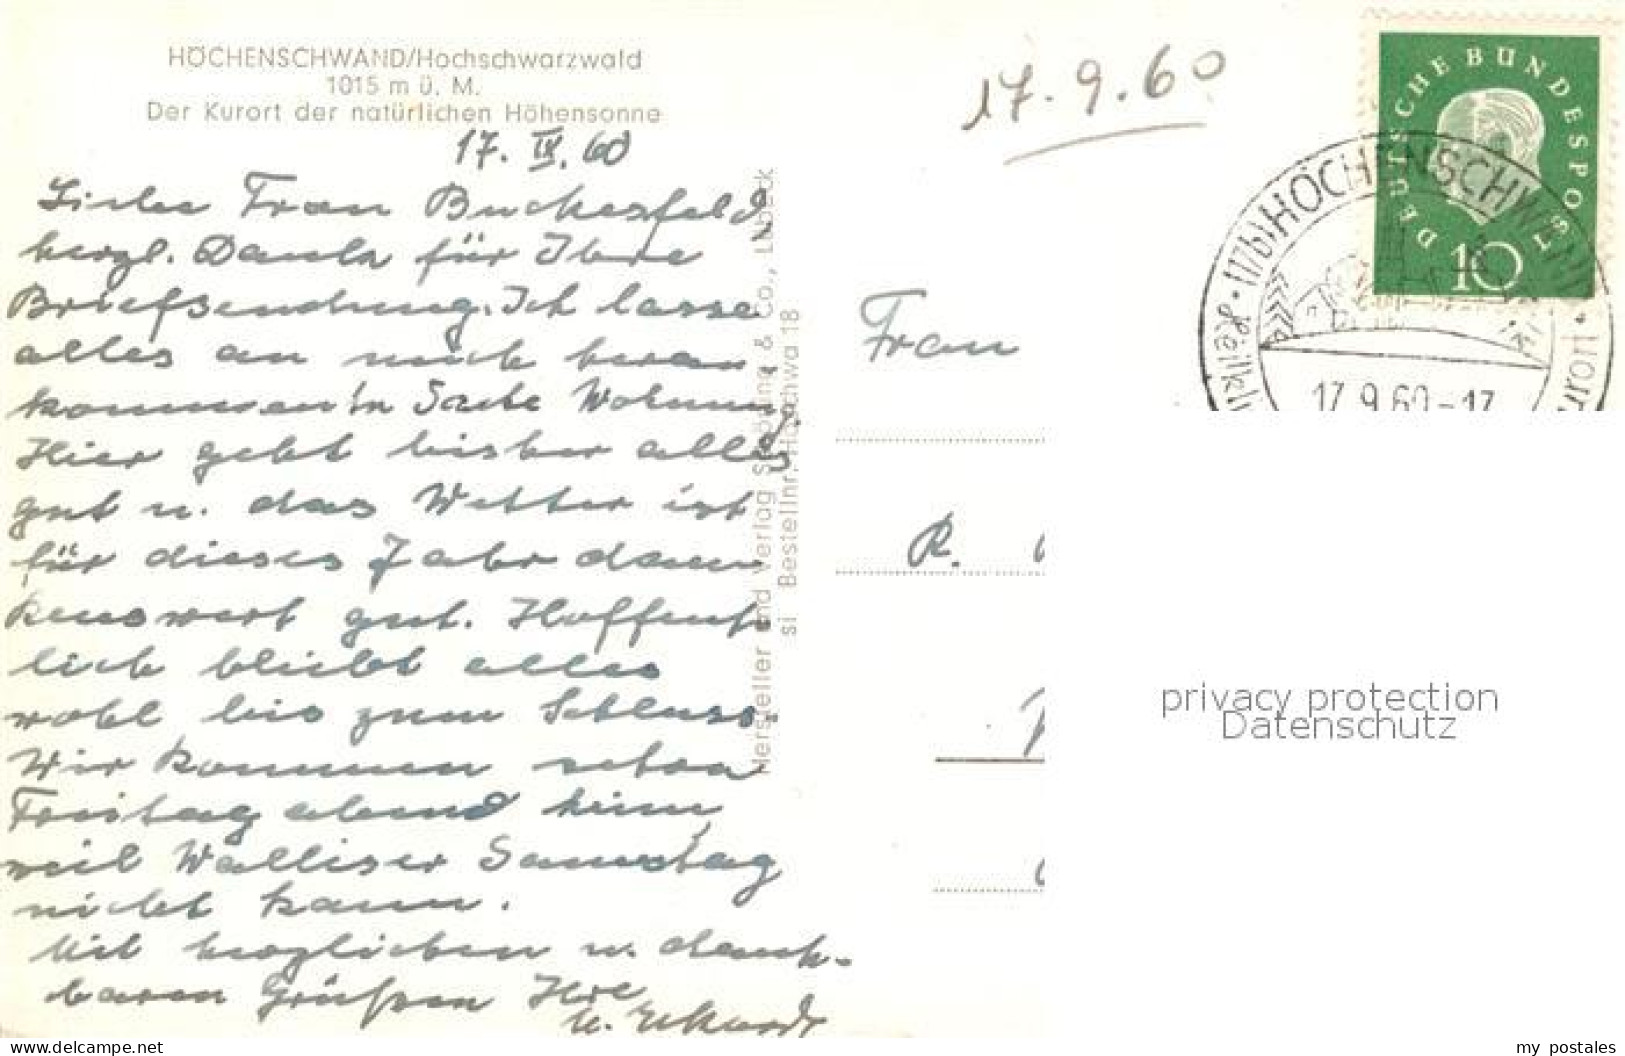 HÖCHENSCHWAND/Hochschwarzwald
1015 m ü. M.
Der Kurort der natürlichen Höhensonne
17. IX. 60
Liebe Frau Buckesfeld,
herzl. Dank für Ihre
Briefsendung. Ich lasse
alles an mich heran-
kommen in Sache Wohnung.
Hier geht bisher alles
gut u. das Wetter ist
für dieses Jahr dan
kenswert gut. Hoffent-
lich bleibt alles
wohl bis zum Schluss.
Wir kommen schon
Freitag abend heim,
weil Walliser Samstag
nicht kann.
Mit herzlichen u. dank-
baren Grüßen Ihre
Eckardt
Hersteller und Verlag & Co., Lübeck
si Bestellnr. Hochwa 18
17.9.60
Frau
R.
DEUTSCHE BUNDESPOST
10
(17b) HÖCHENSCHWAND
17.9.60-17
privacy protection
Datenschutz
my postales
www.delcampe.net